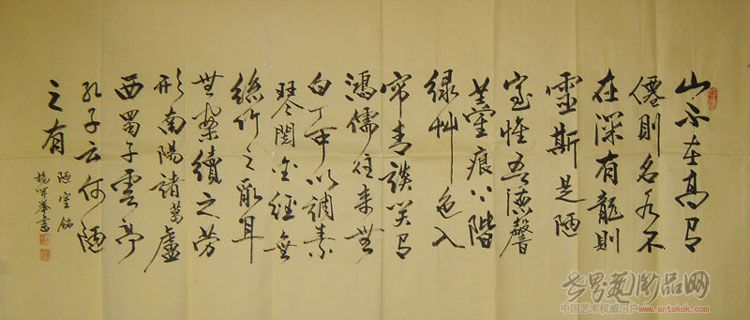 山不在高有
僊則名水不
在深有龍則
靈斯是陋
室惟吾德馨
薹痕上階
綠艸色入
帘青談笑有
鴻儒往来無
白丁可以調素
琴閱金經無
絲竹之亂耳
無案牘之勞
形南陽諸葛廬
西蜀子雲亭
孔子云何陋
之有
陋室銘
書
世界艺术品网
中国艺术权威门户 www.artokok.com